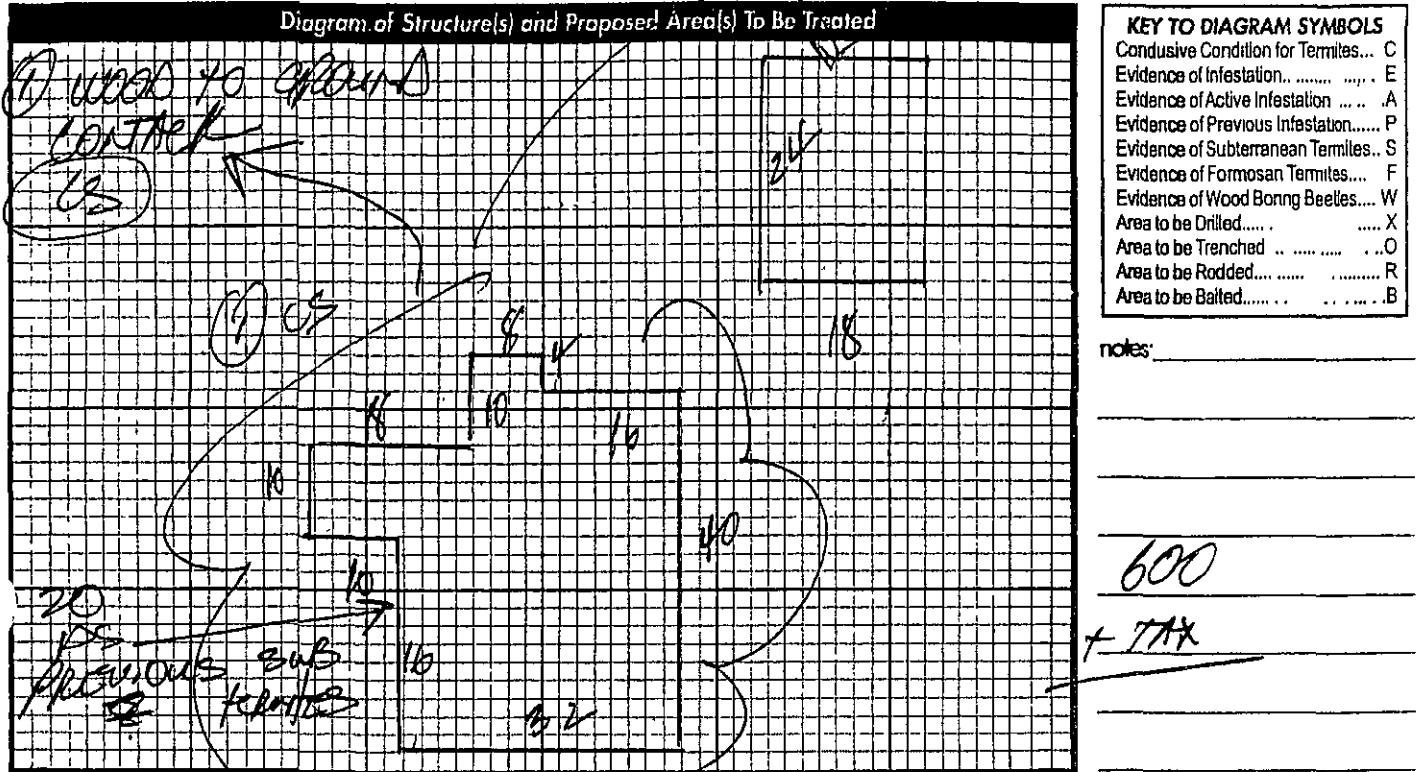 Diagram of Structure(s) and Proposed Area(s) To Be Treated
① WOOD TO GROUND
CONTACT
CS
24
18
① CS
8
4
18
10
16
10
40
10
16
32
20
PS
PREVIOUS SUB
TERMITES
KEY TO DIAGRAM SYMBOLS
Condusive Condition for Termites... C
Evidence of Infestation.. ........ ..... . E
Evidence of Active Infestation ... .. .A
Evidence of Previous Infestation...... P
Evidence of Subterranean Termites.. S
Evidence of Formosan Termites.... F
Evidence of Wood Boring Beetles.... W
Area to be Drilled..... . ..... X
Area to be Trenched .. ...... ..... . ..O
Area to be Rodded.... ...... . ......... R
Area to be Baited...... . . . ... . .B
notes:
600
+ TAX